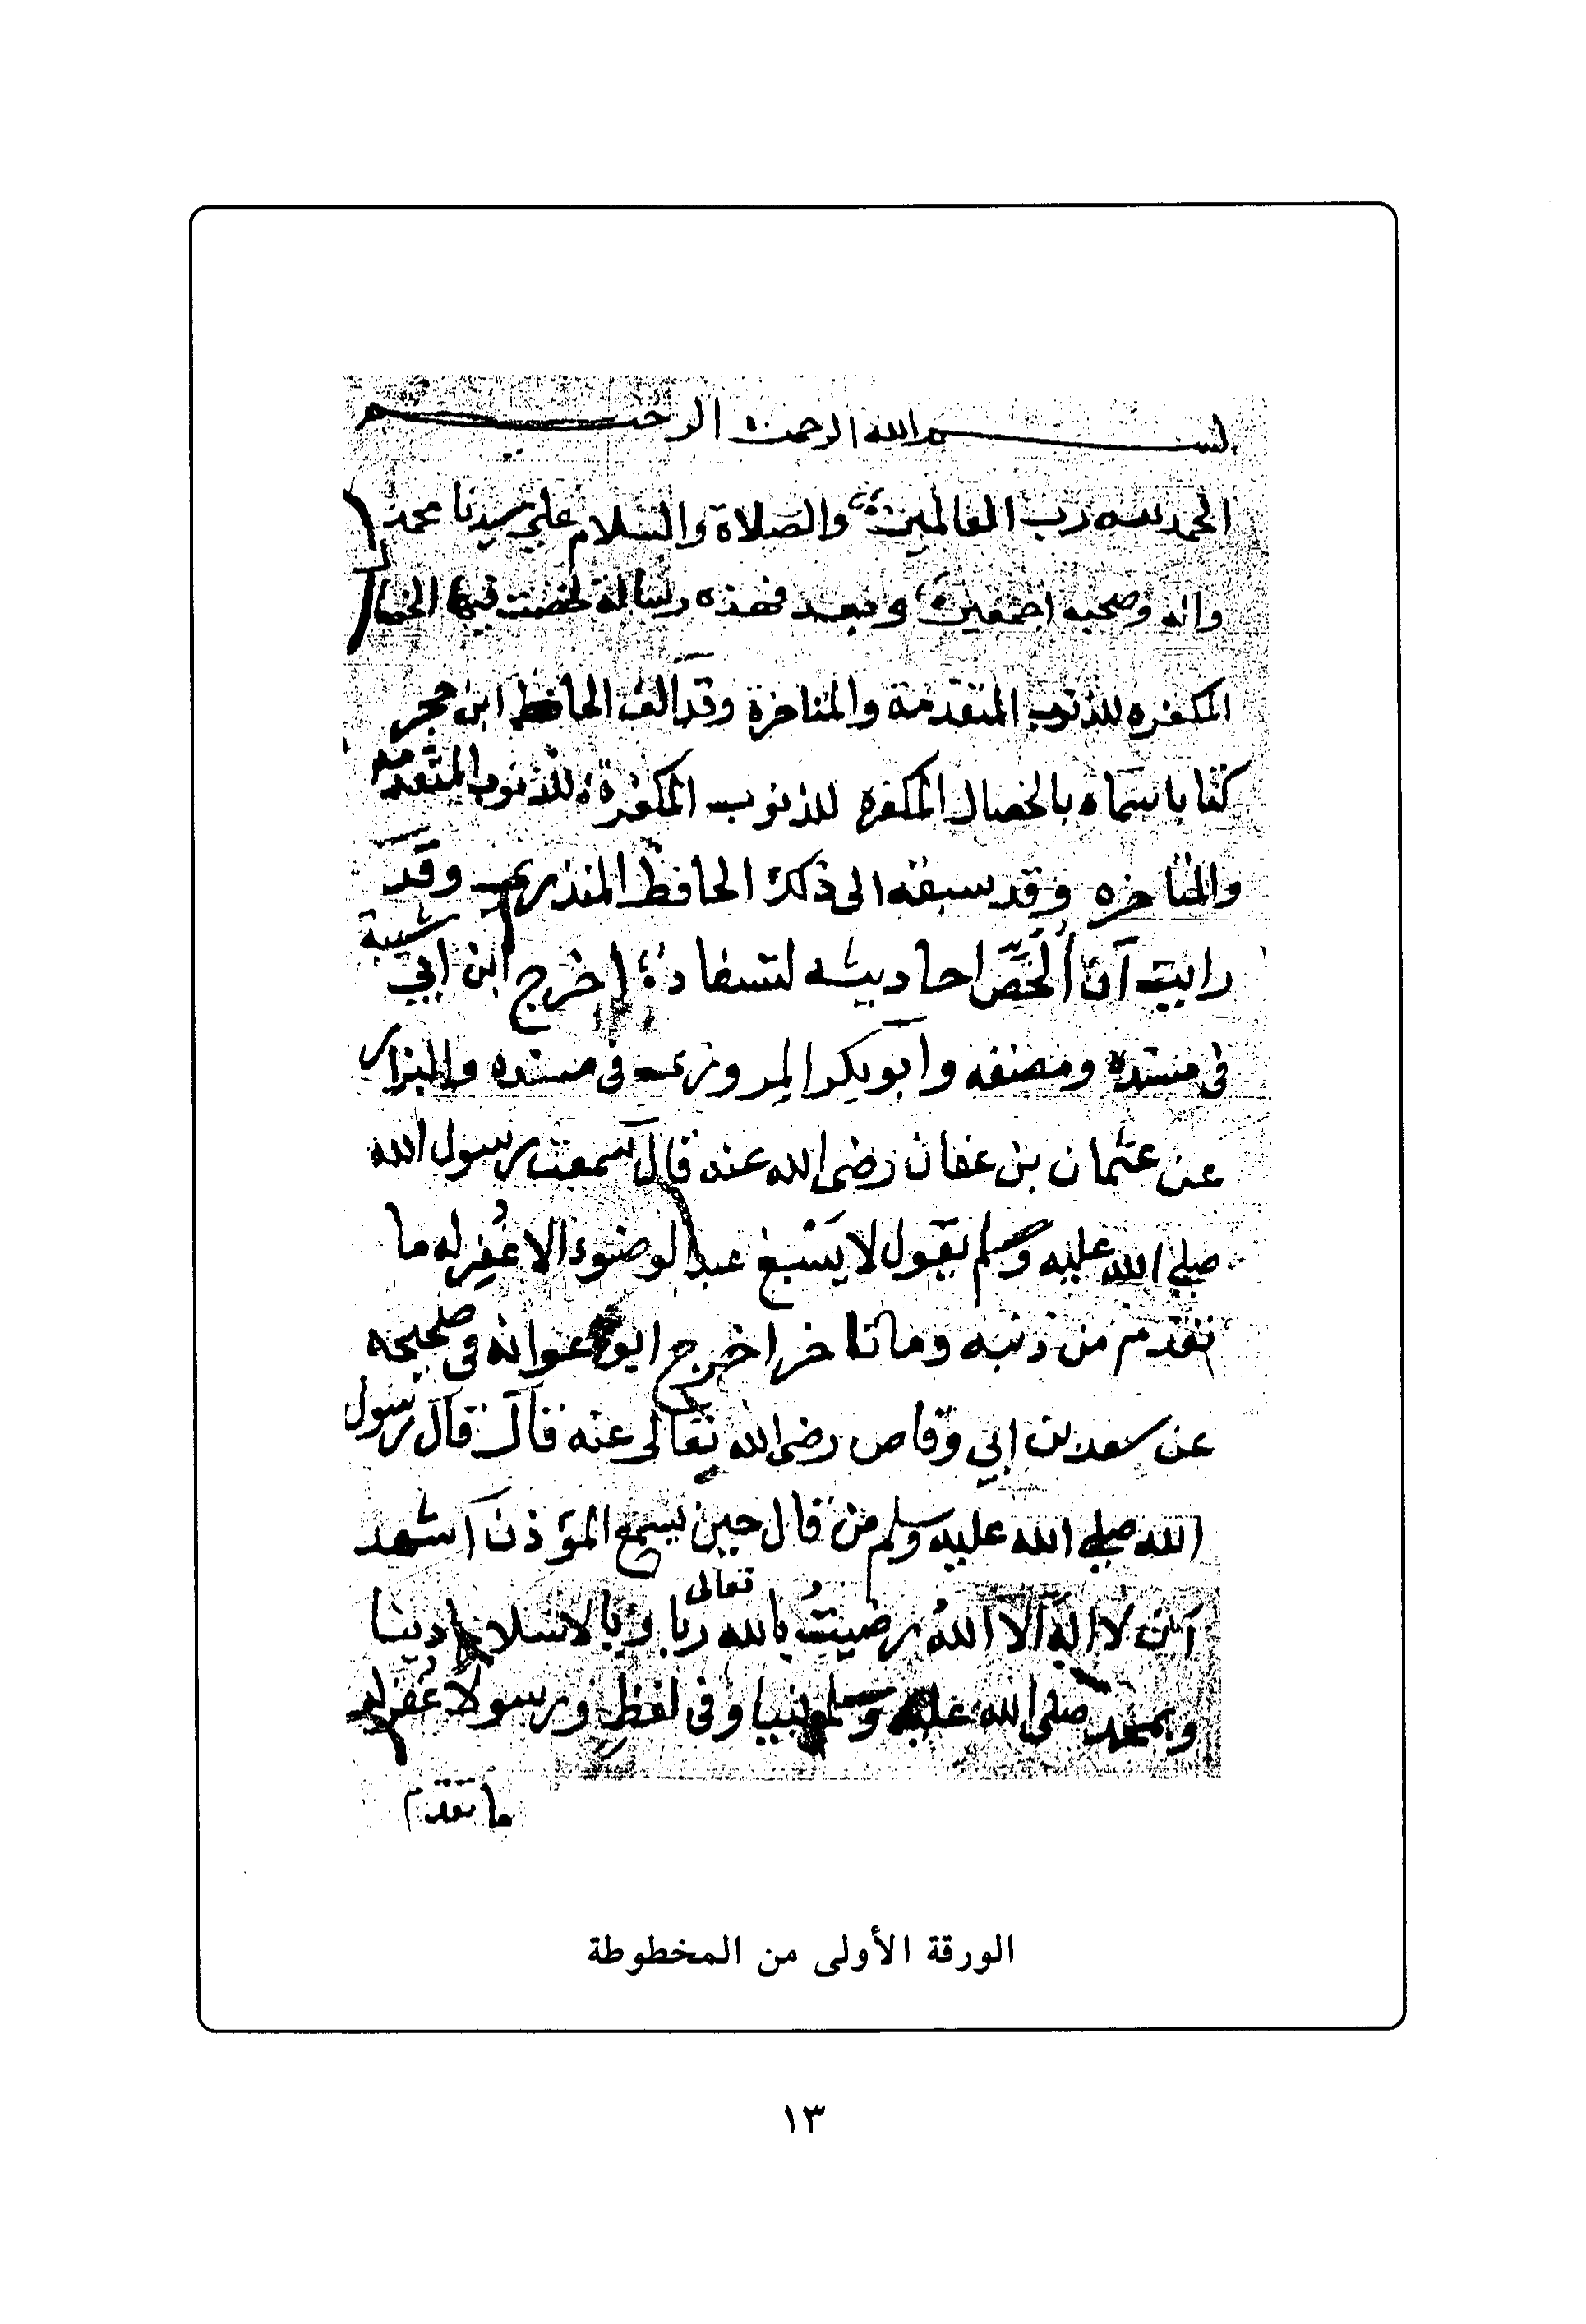 بسم الله الرحمن الرحيم
الحمد لله رب العالمين والصلاة والسلام علي سيدنا محمد
واله وصحبه اجمعين وبعد فهذه رسالة لخصت فيها الخصال
المكفره للذنوب المتقدمة والمتاخرة وقد آلف الحافظ ابن حجر
كتابا سماه بالخصال المكفره للذنوب المكفرة للذنوب المتقدمه
والمتاخره وقد سبقه الى ذلك الحافظ المنذري وقد
رايت آن ألخص احاديثه لتستفاد اخرج ابن ابي شيبة
في مسنده ومصنفه وابو بكر المروزي في مسنده والبزار
عن عثمان بن عفان رضي الله عنه قال سمعت رسول الله
صلي الله عليه وسلم يقول لا يسبغ عبد الوضوء الا غُفِر له ما
تقدم من ذنبه وما تاخر اخرج ابو عوانه في صحيحه
عن سعد بن ابي وقاص رضي الله تعالى عنه قال قال رسول
الله صلي الله عليه وسلم من قال حين يسمع المؤذن آشهد
آن لا اله الا اللهُ رضيتُ بالله تعالى ربا وبالاسلام دينا
وبمحمد صلى الله عليه وسلم نبيا وفي لفظٍ ورسولا غُفِر له
ما تقدم
الورقة الأولى من المخطوطة
١٣